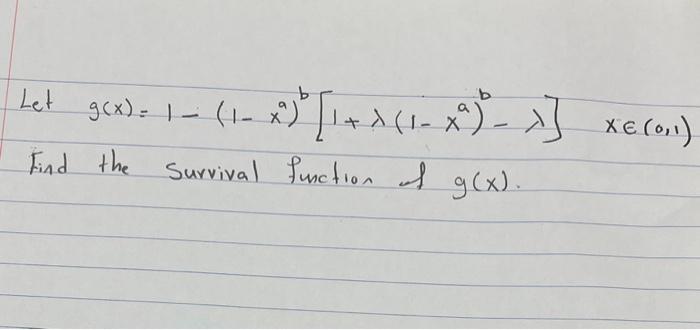 Let g(x) = 1 - (1 - x^a)^b [1 + λ(1 - x^a)^b - λ] x ∈ (0,1)
Find the survival function of g(x).